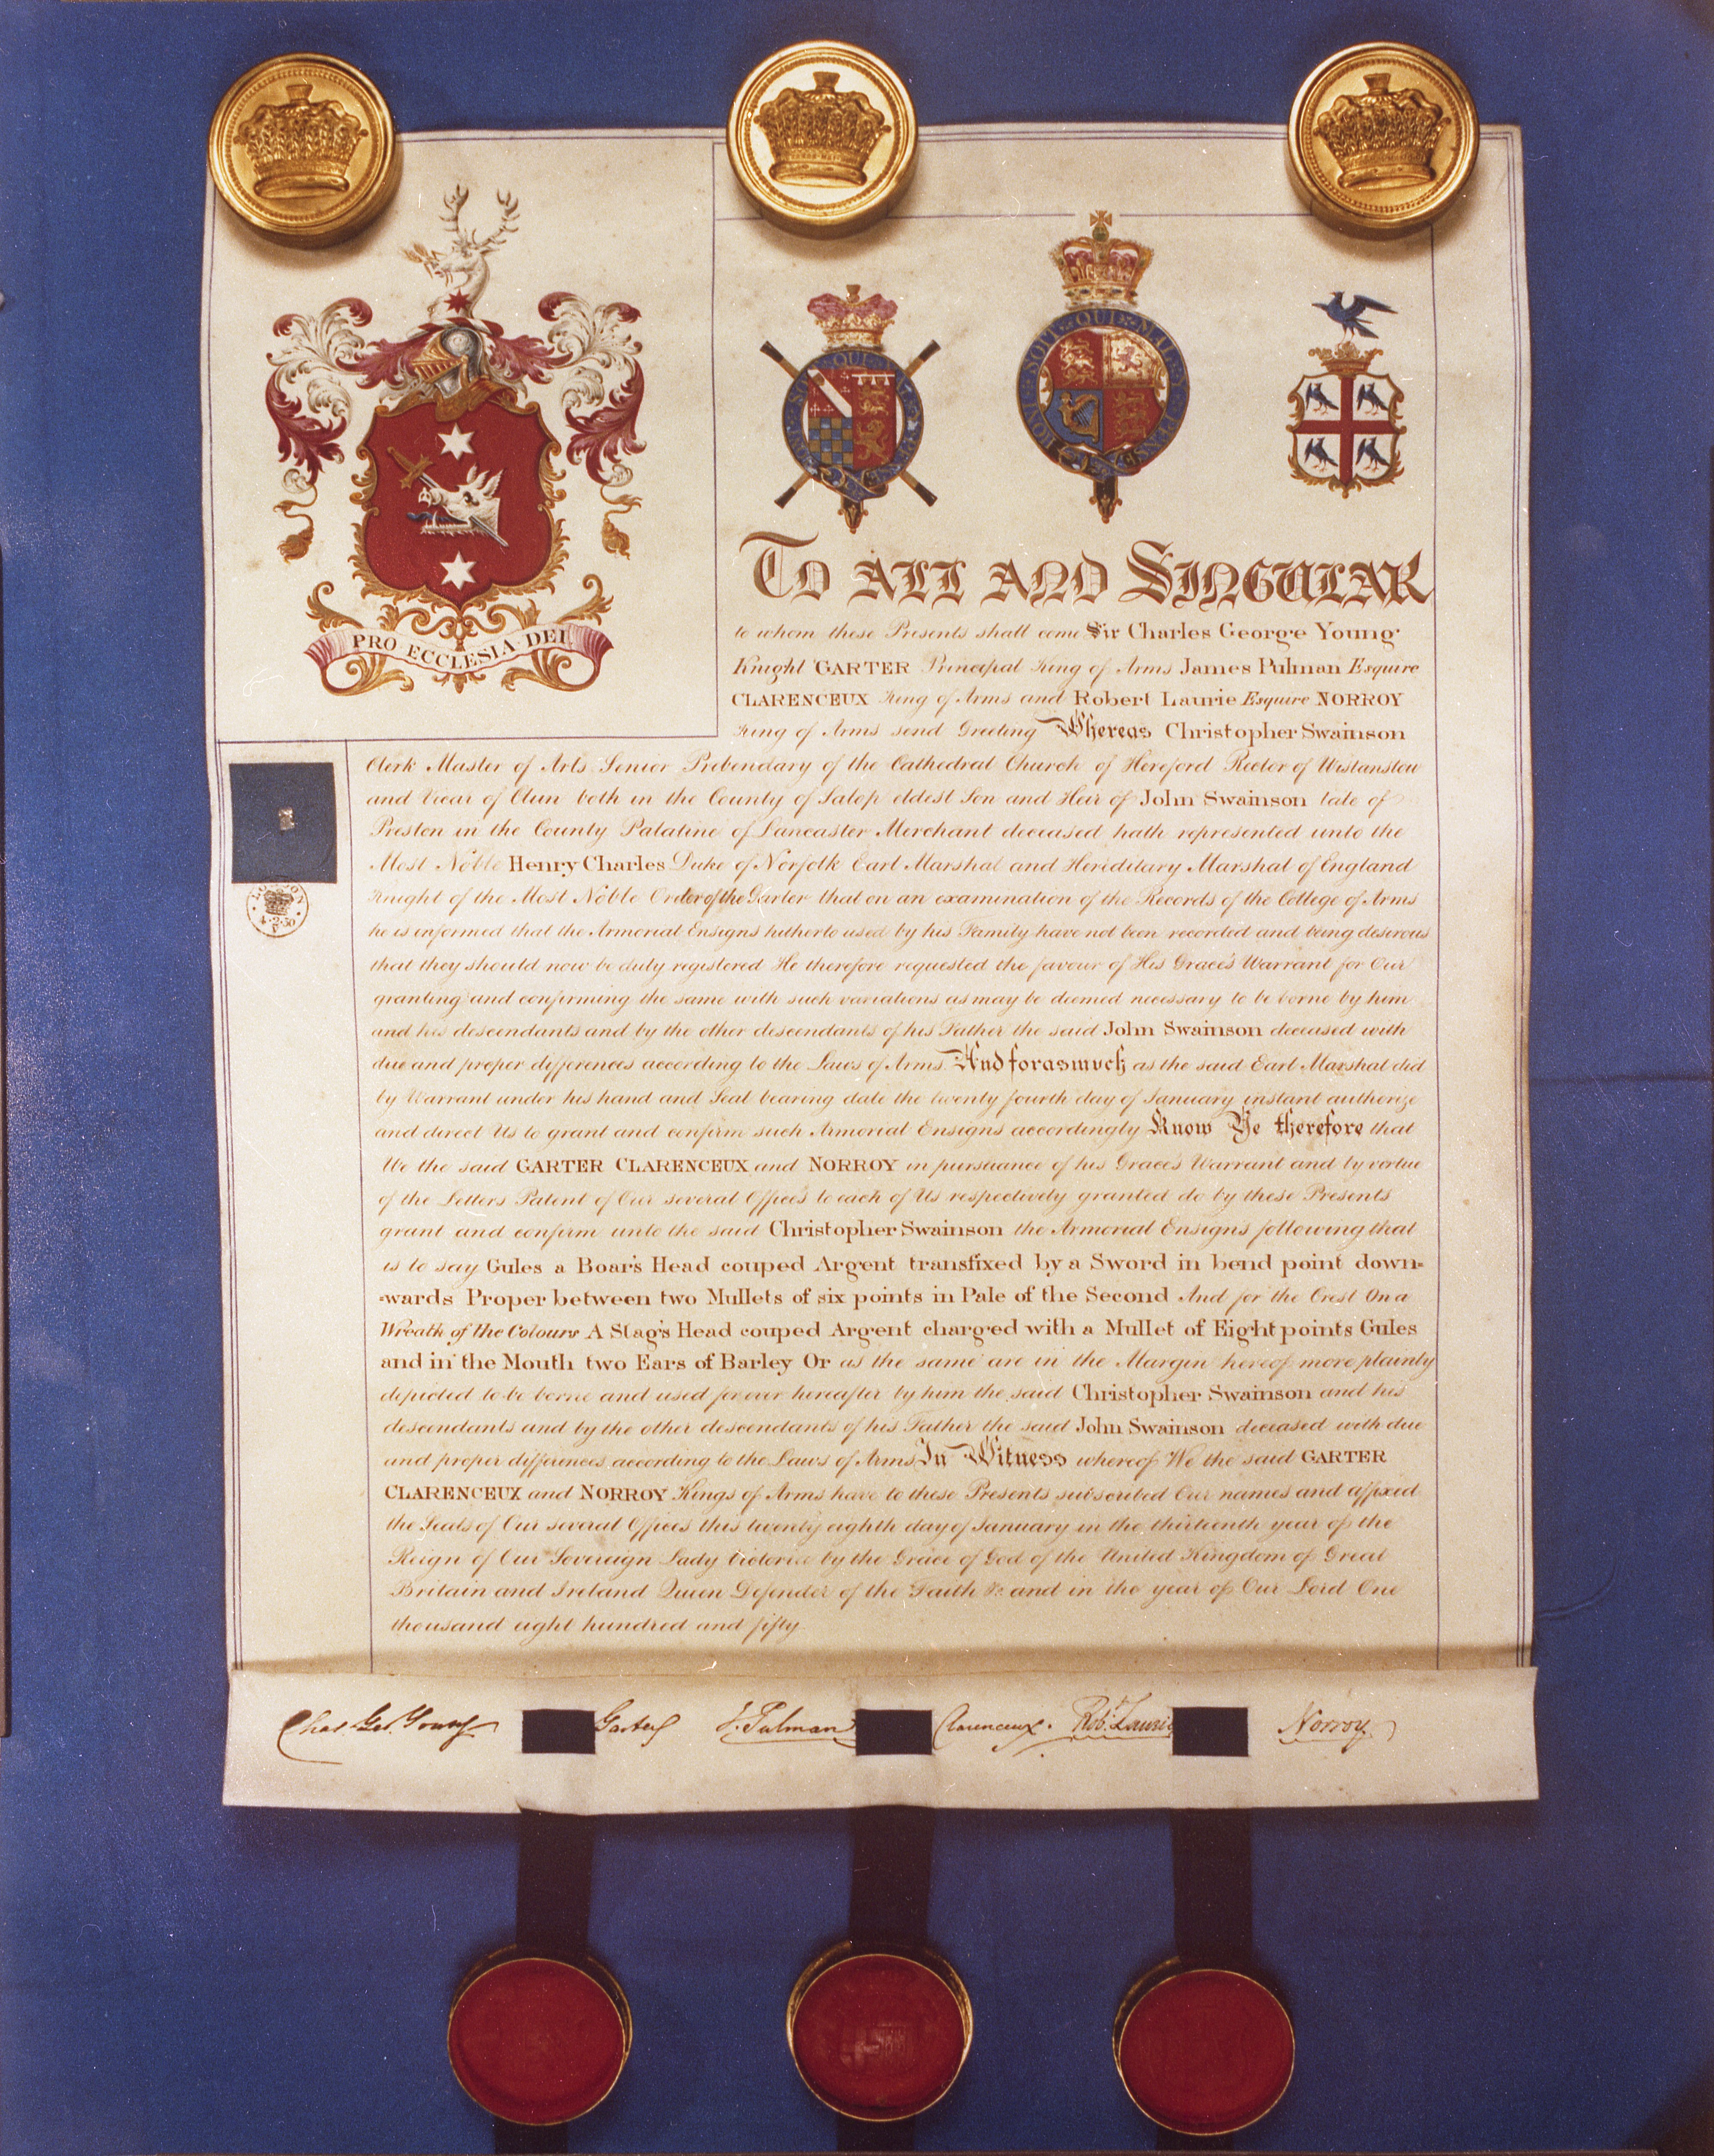 PRO ECCLESIA DEI
HONI·SOIT·QUI·MAL·Y·PENSE
TO ALL AND SINGULAR
to whom these Presents shall come Sir Charles George Young
Knight GARTER Principal King of Arms James Pulman Esquire
CLARENCEUX King of Arms and Robert Laurie Esquire NORROY
King of Arms send Greeting Whereas Christopher Swainson
Clerk Master of Arts Senior Prebendary of the Cathedral Church of Hereford Rector of Wistanstow
and Vicar of Clun both in the County of Salop eldest Son and Heir of John Swainson late of
Preston in the County Palatine of Lancaster Merchant deceased hath represented unto the
Most Noble Henry Charles Duke of Norfolk Earl Marshal and Hereditary Marshal of England
Knight of the Most Noble Order of the Garter that on an examination of the Records of the College of Arms
he is informed that the Armorial Ensigns hitherto used by his Family have not been recorded and being desirous
that they should now be duly registered He therefore requested the favour of His Grace's Warrant for Our
granting and confirming the same with such variations as may be deemed necessary to be borne by him
and his descendants and by the other descendants of his Father the said John Swainson deceased with
due and proper differences according to the Laws of Arms And forasmuch as the said Earl Marshal did
by Warrant under his hand and Seal bearing date the twenty fourth day of January instant authorize
and direct Us to grant and confirm such Armorial Ensigns accordingly Know Ye therefore that
We the said GARTER CLARENCEUX and NORROY in pursuance of his Grace's Warrant and by virtue
of the Letters Patent of Our several Offices to each of Us respectively granted do by these Presents
grant and confirm unto the said Christopher Swainson the Armorial Ensigns following that
is to say Gules a Boar's Head couped Argent transfixed by a Sword in bend point down=
=wards Proper between two Mullets of six points in Pale of the Second And for the Crest On a
Wreath of the Colours A Stag's Head couped Argent charged with a Mullet of Eight points Gules
and in the Mouth two Ears of Barley Or as the same are in the Margin hereof more plainly
depicted to be borne and used for ever hereafter by him the said Christopher Swainson and his
descendants and by the other descendants of his Father the said John Swainson deceased with due
and proper differences according to the Laws of Arms In Witness whereof We the said GARTER
CLARENCEUX and NORROY Kings of Arms have to these Presents subscribed Our names and affixed
the Seals of Our several Offices this twenty eighth day of January in the thirteenth year of the
Reign of Our Sovereign Lady Victoria by the Grace of God of the United Kingdom of Great
Britain and Ireland Queen Defender of the Faith &c and in the year of Our Lord One
thousand eight hundred and fifty
LONDON
4·2·50
Chas. Geo. Young Garter J. Pulman Clarenceux. Robt. Laurie Norroy